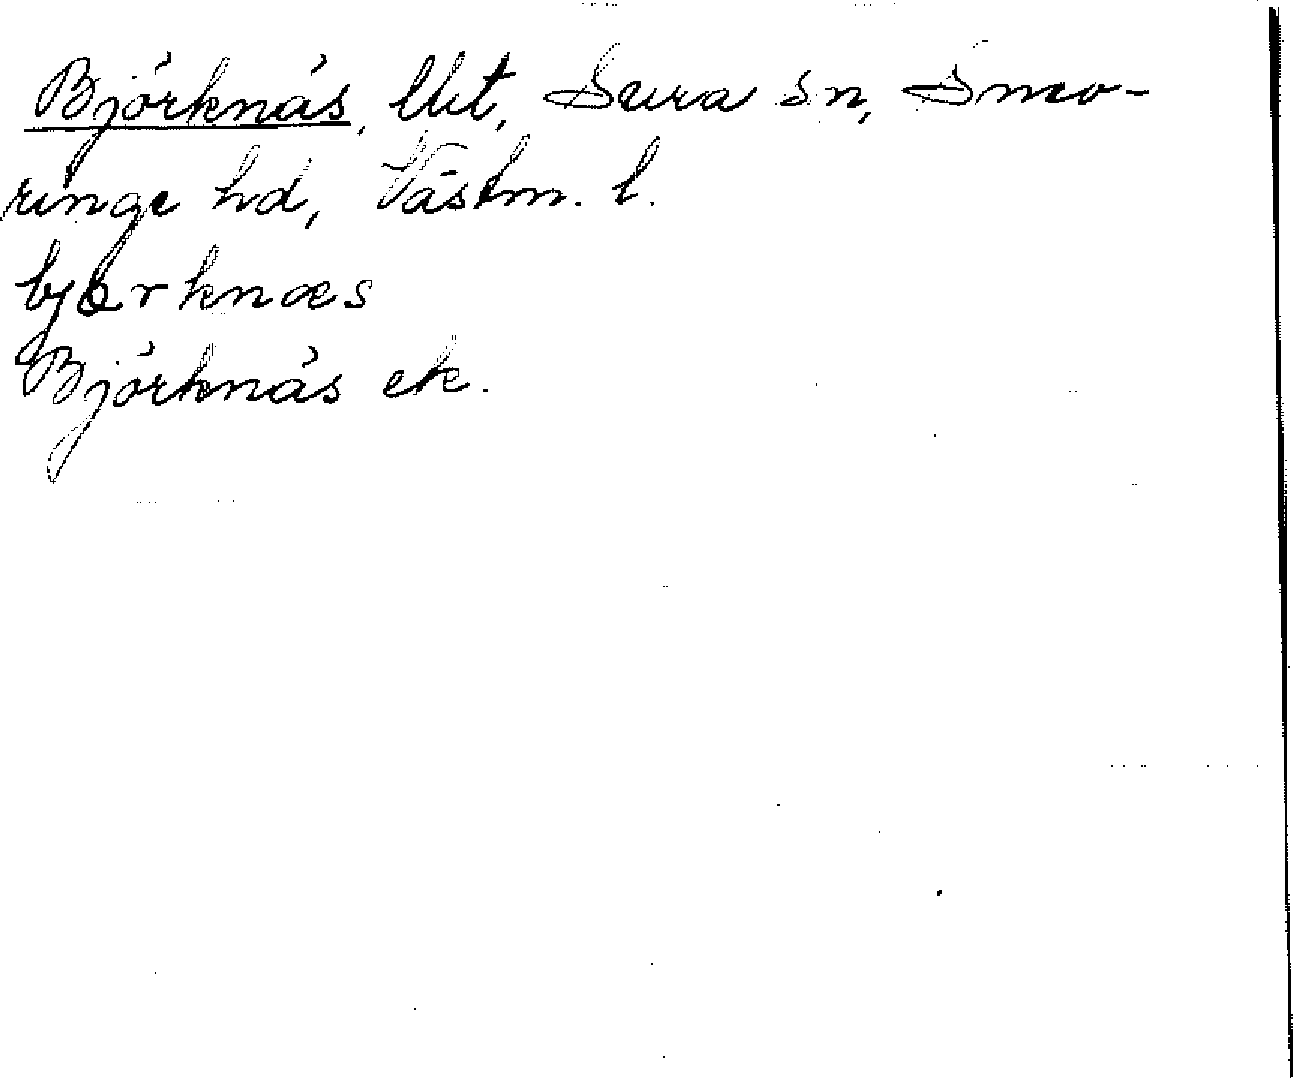 Björknäs, lht, Sura sn, Snev-
ringe hd, Västm. l.
bjørknæs
Björknäs ek.